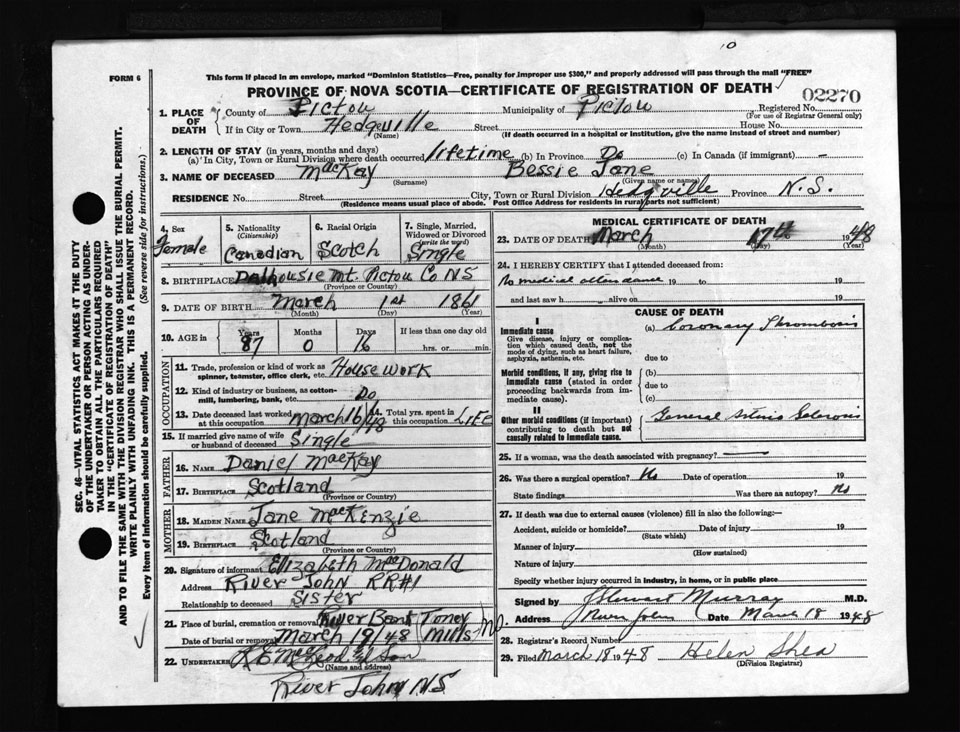 10
FORM 6
This form if placed in an envelope, marked "Dominion Statistics—Free, penalty for improper use $300," and properly addressed will pass through the mail "FREE"
PROVINCE OF NOVA SCOTIA—CERTIFICATE OF REGISTRATION OF DEATH
02270
1. PLACE OF DEATH
County of Pictou Municipality of Pictou Registered No.
(For use of Registrar General only)
If in City or Town Hedgeville Street House No.
(Name) (If death occurred in a hospital or institution, give the name instead of street and number)
2. LENGTH OF STAY (in years, months and days)
(a) In City, Town or Rural Division where death occurred lifetime (b) In Province Do (c) In Canada (if immigrant) —
3. NAME OF DECEASED MacKay Bessie Jane
(Surname) (Given name or names)
RESIDENCE No. Street City, Town or Rural Division Hedgville Province N.S.
(Residence means usual place of abode. Post Office Address for residents in rural parts not sufficient)
4. Sex
Female
5. Nationality
(Citizenship)
Canadian
6. Racial Origin
Scotch
7. Single, Married, Widowed or Divorced
(write the word)
Single
8. BIRTHPLACE Dalhousie Mt. Pictou Co NS
(Province or Country)
9. DATE OF BIRTH March 1st 1861
(Month) (Day) (Year)
10. AGE in
Years Months Days If less than one day old
87 0 16 hrs. or min.
OCCUPATION
11. Trade, profession or kind of work as spinner, teamster, office clerk, etc. Housework
12. Kind of industry or business, as cotton-mill, lumbering, bank, etc. Do
13. Date deceased last worked at this occupation March 16/48
14. Total yrs. spent in this occupation LIFE
15. If married give name of wife or husband of deceased Single
FATHER
16. NAME Daniel MacKay
17. BIRTHPLACE Scotland
(Province or Country)
MOTHER
18. MAIDEN NAME Jane MacKenzie
19. BIRTHPLACE Scotland
(Province or Country)
20. Signature of informant Elizabeth MacDonald
Address River John RR#1
Relationship to deceased Sister
21. Place of burial, cremation or removal River Bank Toney Mills
Date of burial or removal March 19/48
22. UNDERTAKER & Son
(Name and address)
River John N.S
MEDICAL CERTIFICATE OF DEATH
23. DATE OF DEATH March 17th 1948
(Month) (Day) (Year)
24. I HEREBY CERTIFY that I attended deceased from:
No medical attendance 19 to 19
and last saw h alive on 19
CAUSE OF DEATH
I
Immediate cause (a) Coronary Thrombosis
Give disease, injury or complication which caused death, not the mode of dying, such as heart failure, asphyxia, asthenia, etc.
due to
Morbid conditions, if any, giving rise to immediate cause (stated in order proceeding backwards from immediate cause).
(b)
due to
(c)
II
Other morbid conditions (if important) contributing to death but not causally related to immediate cause.
General Arterio Sclerosis
25. If a woman, was the death associated with pregnancy? —
26. Was there a surgical operation? No Date of operation 19
State findings Was there an autopsy? No
27. If death was due to external causes (violence) fill in also the following:—
Accident, suicide or homicide? Date of injury 19
(State which)
Manner of injury
(How sustained)
Nature of injury
Specify whether injury occurred in industry, in home, or in public place
Signed by J Stewart Murray M.D.
Address River John Date March 18 1948
28. Registrar's Record Number
29. Filed March 18 1948 Helen Shea
(Division Registrar)
SEC. 46—VITAL STATISTICS ACT MAKES IT THE DUTY
OF THE UNDERTAKER OR PERSON ACTING AS UNDER-
TAKER TO OBTAIN ALL THE PARTICULARS REQUIRED
IN THE "CERTIFICATE OF REGISTRATION OF DEATH"
AND TO FILE THE SAME WITH THE DIVISION REGISTRAR WHO SHALL ISSUE THE BURIAL PERMIT.
WRITE PLAINLY WITH UNFADING INK. THIS IS A PERMANENT RECORD.
Every item of information should be carefully supplied. (See reverse side for instructions.)